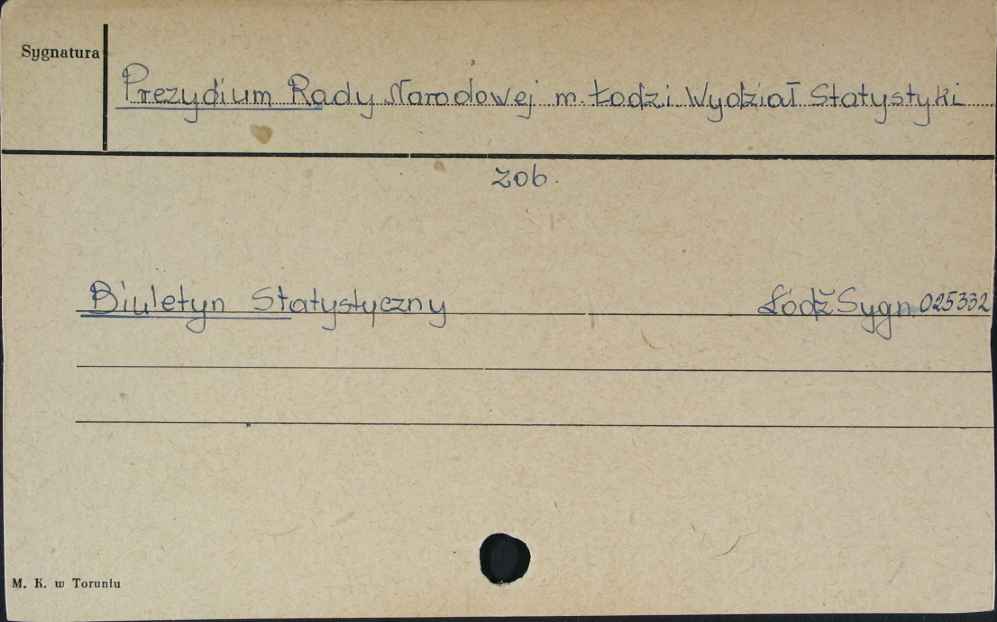 Sygnatura
Prezydium Rady Narodowej m. Łodzi Wydział Statystyki
zob.
Biuletyn Statystyczny Łódź Sygn. 025332
M. K. w Toruniu